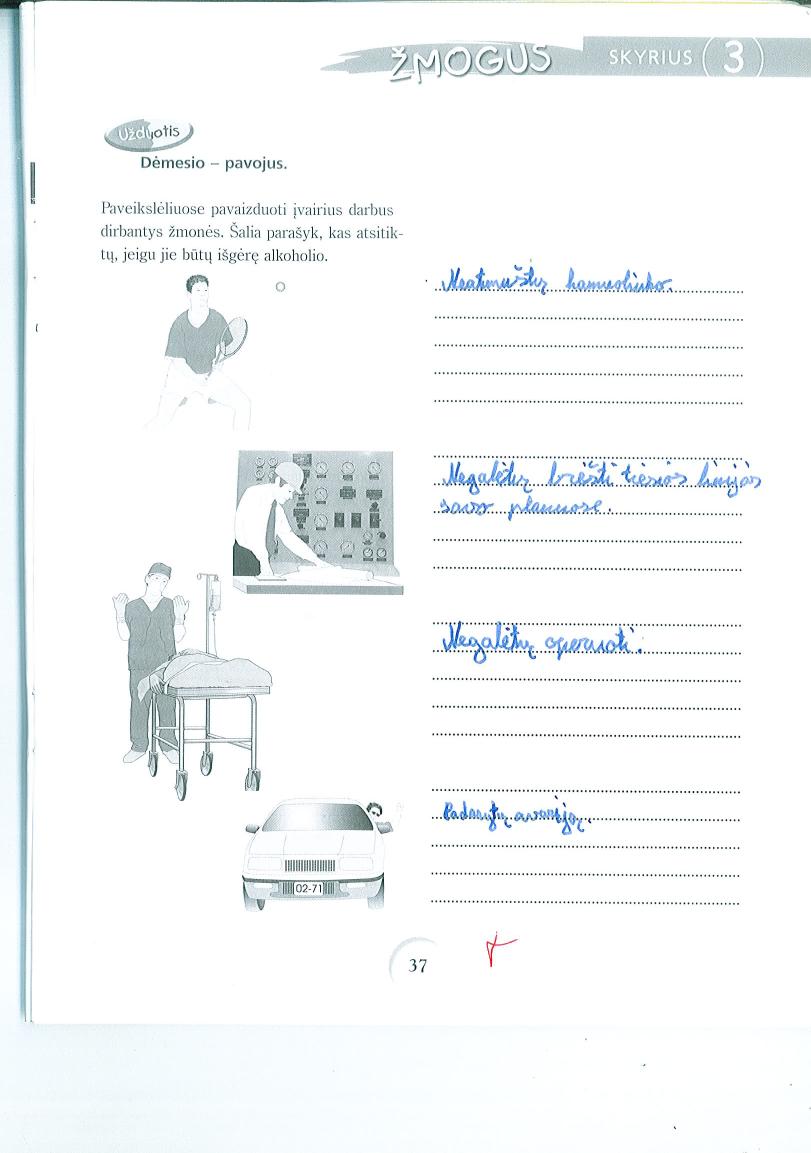 ŽMOGUS SKYRIUS 3
Užduotis
Dėmesio – pavojus.
Paveikslėliuose pavaizduoti įvairius darbus
dirbantys žmonės. Šalia parašyk, kas atsitik-
tų, jeigu jie būtų išgėrę alkoholio.
Neatmuštų kamuoliuko.
Negalėtų brėžti tiesios linijos
savo planuose.
Negalėtų operuoti.
Padarytų avariją.
02-71
37